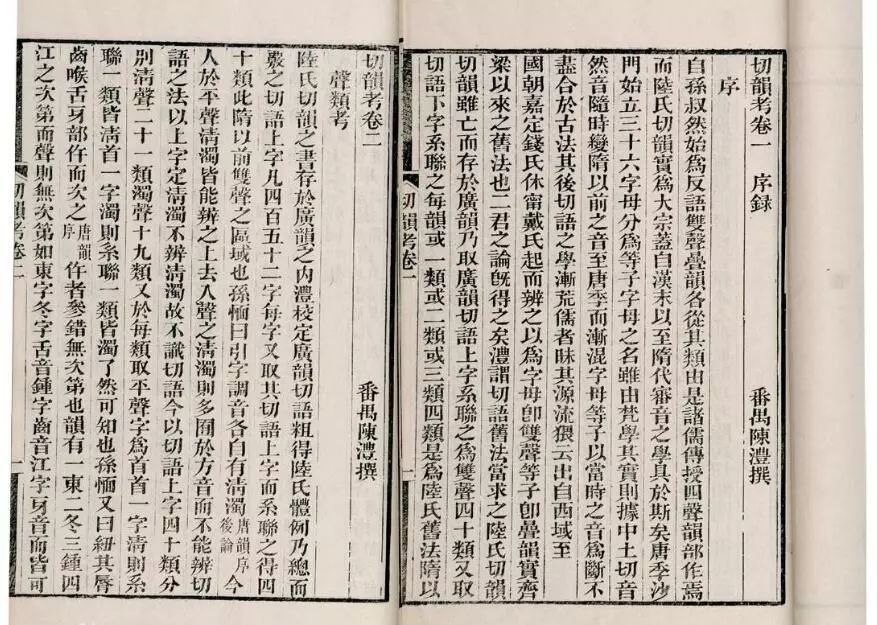 切韻考卷一 序錄
番禺陳澧撰
序
自孫叔然始爲反語雙聲疊韻各從其類由是諸儒傳授四聲韻部作焉
而陸氏切韻實爲大宗蓋自漢末以至隋代審音之學具於斯矣唐季沙
門始立三十六字母分爲等子字母之名雖由梵學其實則據中土切音
然音隨時變隋以前之音至唐季而漸混字母等子以當時之音爲斷不
盡合於古法其後切語之學漸荒儒者昧其源流猥云出自西域至
國朝嘉定錢氏休甯戴氏起而辨之以爲字母卽雙聲等子卽疊韻實齊
梁以來之舊法也二君之論旣得之矣澧謂切語舊法當求之陸氏切韻
切韻雖亡而存於廣韻乃取廣韻切語上字系聯之爲雙聲四十類又取
切語下字系聯之每韻或一類或二類或三類四類是爲陸氏舊法隋以
切韻考卷一
一
切韻考卷二
番禺陳澧撰
聲類考
陸氏切韻之書存於廣韻之內澧校定廣韻切語粗得陸氏體例乃總而
覈之切語上字凡四百五十二字每字又取其切語上字而系聯之得四
十類此隋以前雙聲之區域也孫愐曰引字調音各自有淸濁唐韻序後論今
人於平聲淸濁皆能辨之上去入聲之淸濁則多囿於方音而不能辨切
語之法以上字定淸濁不辨淸濁故不識切語今以切語上字四十類分
別淸聲二十一類濁聲十九類又於每類取平聲字爲首首一字淸則系
聯一類皆淸首一字濁則系聯一類皆濁了然可知也孫愐又曰紐其脣
齒喉舌牙部仵而次之唐韻序仵者參錯無次第也韻有一東二冬三鍾四
江之次第而聲則無次第如東字冬字舌音鍾字齒音江字牙音而皆可
切韻考卷二
一